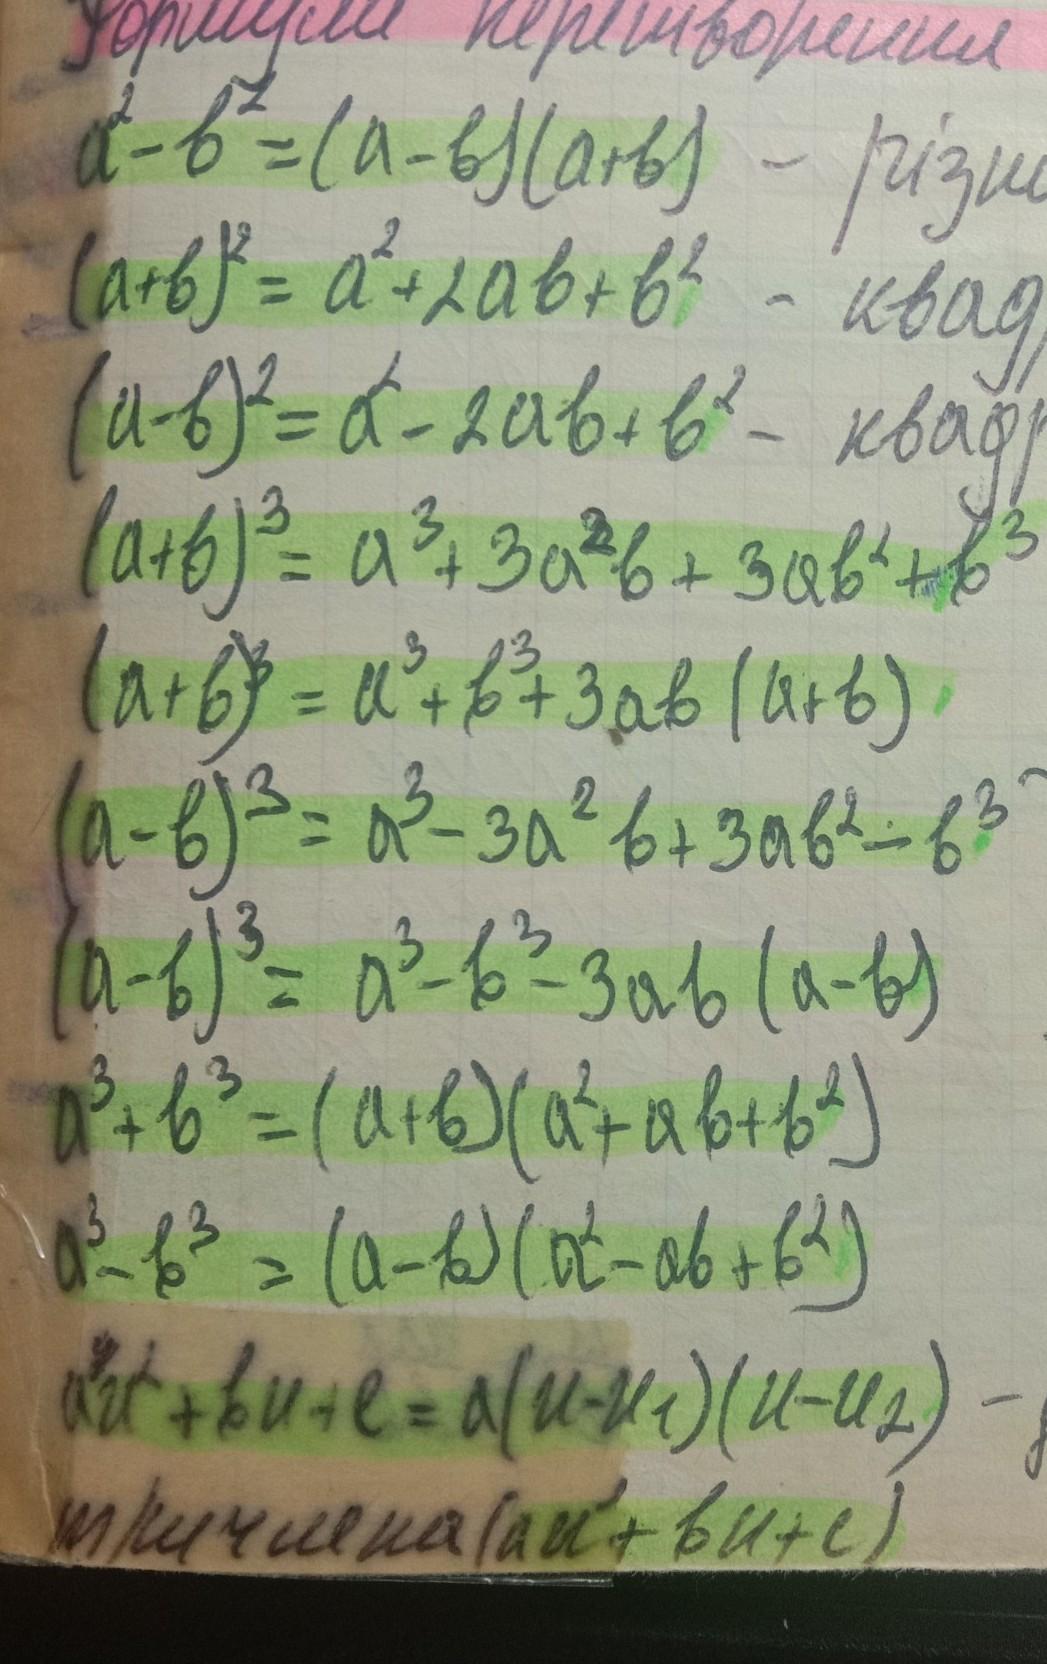 Формули перетворення
a² - b² = (a - b)(a + b) - різни
(a + b)² = a² + 2ab + b² - квад
(a - b)² = a² - 2ab + b² - квадр
(a + b)³ = a³ + 3a²b + 3ab² + b³
(a + b)³ = a³ + b³ + 3ab (a + b)
(a - b)³ = a³ - 3a²b + 3ab² - b³
(a - b)³ = a³ - b³ - 3ab (a - b)
a³ + b³ = (a + b)(a² + ab + b²)
a³ - b³ = (a - b)(a² - ab + b²)
ax² + bx + c = a(x - x₁)(x - x₂) -
тричлена (ax² + bx + c)